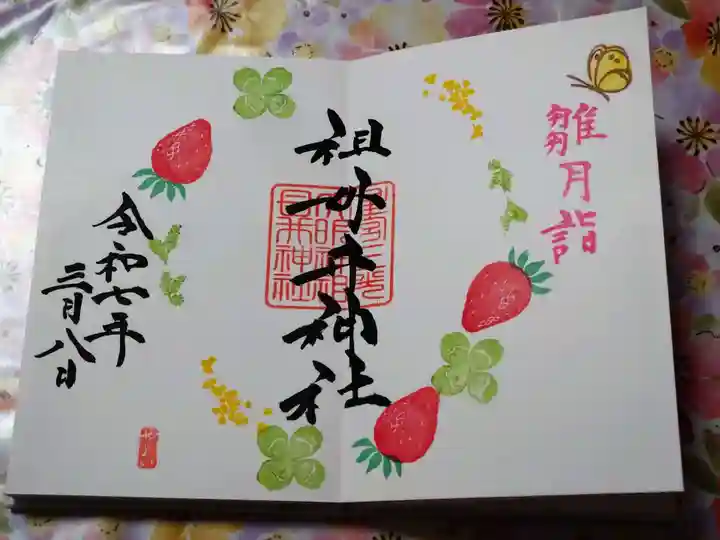 雛月詣
祖母井神社
令和七年
三月八日